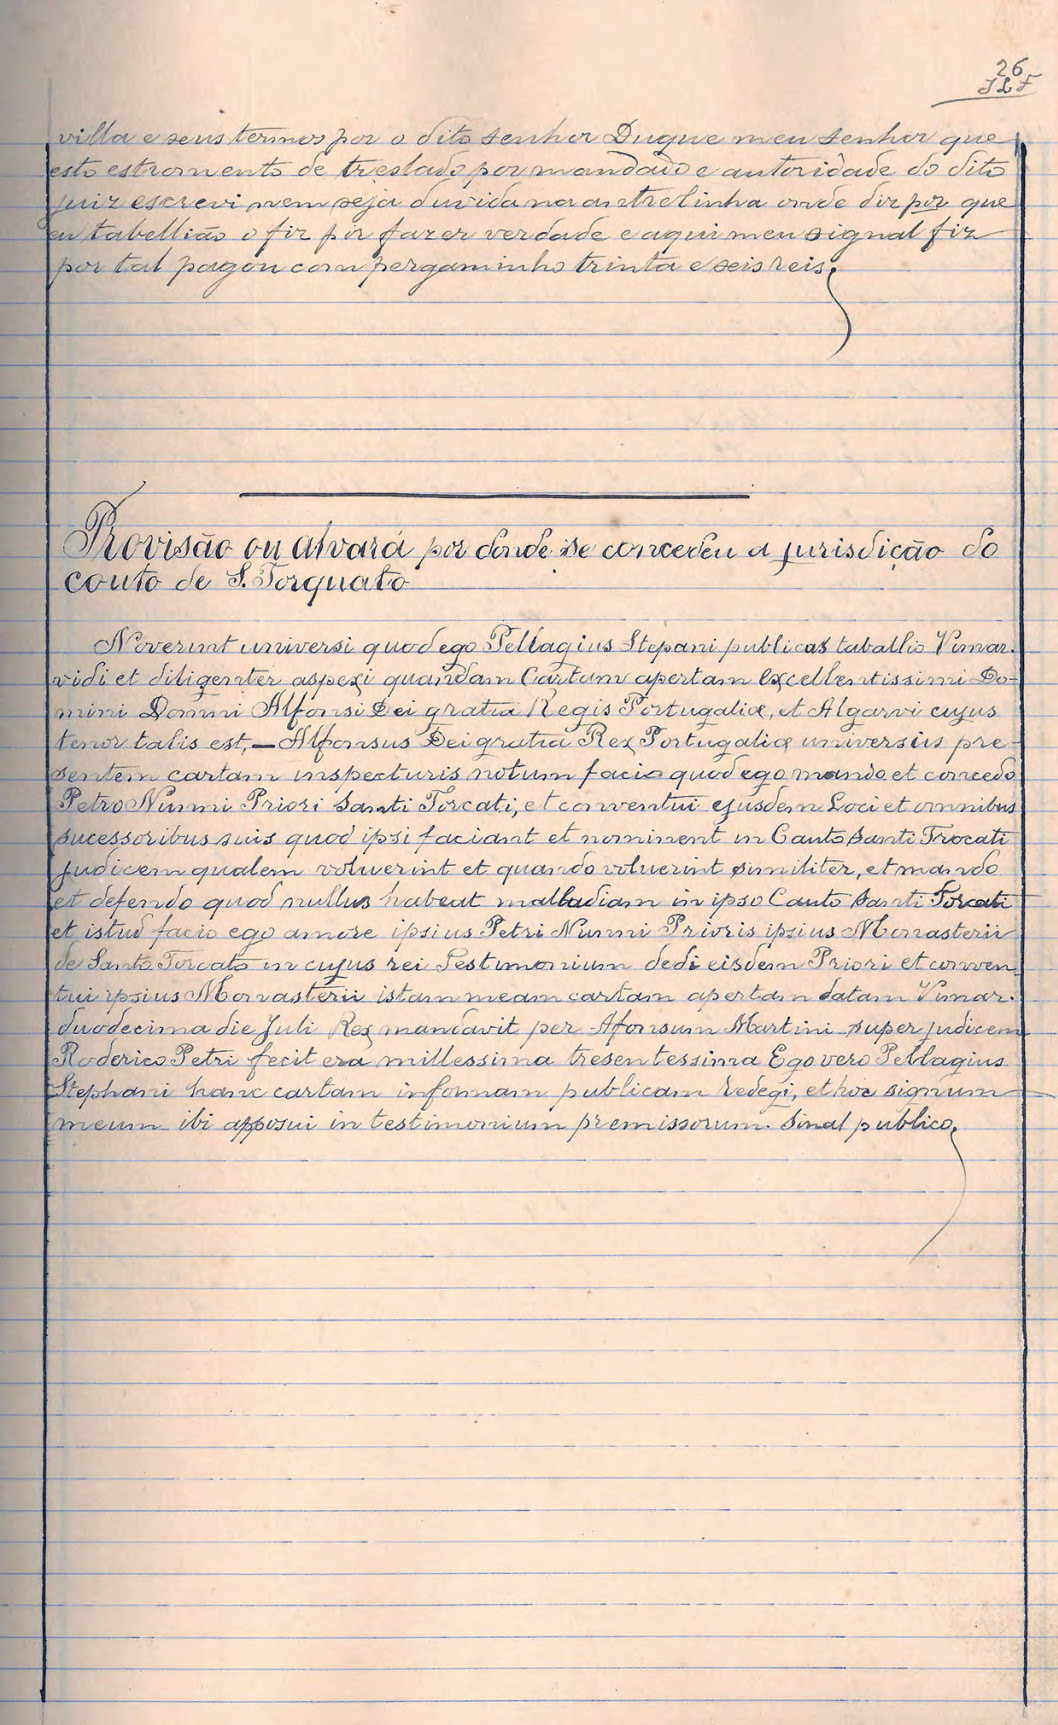 26
villa e seus termos por o dito senhor Duque meu senhor que
esto estromento de treslado por mandado e autoridade do dito
juiz escrevi nem seja duvida na antrelinha onde diz por que
eu tabellião o fiz por fazer verdade e aqui meu signal fiz
por tal pagou com pergaminho trinta e seis reis.
Provisão ou alvará por donde se concedeu a jurisdição do
couto de S. Torquato
Noverint universi quod ego Pellagius Stepani publicas taballio Vimar.
vidi et diligenter aspexi quandam Cartam apertam excellentissimi Do-
mini Domni Alfonsi Dei gratia Regis Portugaliæ, et Algarvi cujus
tenor talis est, — Alfonsus Dei gratia Rex Portugaliæ universiis pre-
sentem cartam inspecturis notum facio quod ego mando et concedo
Petro Nunni Priori Santi Torcati, et conventui ejusdem Loci et omnibus
sucessoribus suis quod ipsi faciant et nominent in Cauto Santi Trocati
Judicem qualem voluerint et quando voluerint similiter, et mando
et defendo quod nullus habeat malladiam in ipso Cauto Santi Torcati
et istud facio ego amore ipsius Petri Nunni Prioris ipsius Monasterii
de Santo Torcato in cujus rei Testimonium dedi eisdem Priori et conven
tui ipsius Monasterii istam meam cartam apertam datam Vimar.
duodecima die Juli Rex mandavit per Afonsum Martini super judicem
Roderico Petri fecit era millessima tresentessima Ego vero Pellagius
Stephani hanc cartam informam publicam redegi, et hoc signum
meum ibi apposui in testimonium premissorum. Sinal publico.